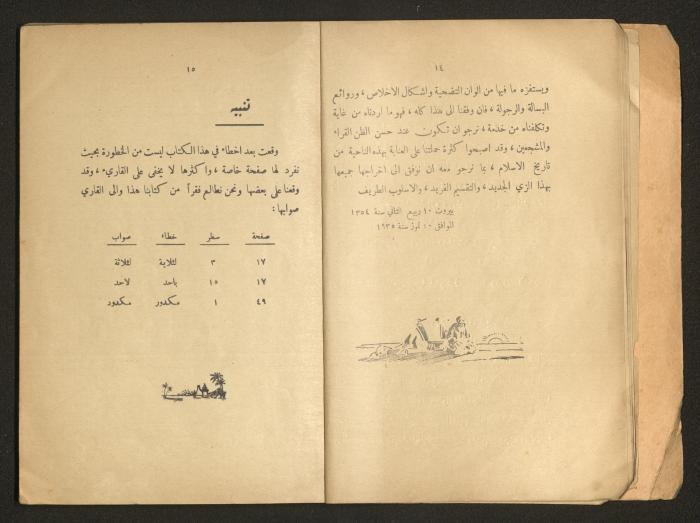 ١٤
ويستفزه ما فيها من الوان التضحية واشكال الاخلاص ، وروائع
البسالة والرجولة ، فان وفقنا الى هذا كله ، فهو ما اردناه من غاية
وتكلفناه من خدمة ، نرجو ان تكون عند حسن الظن القراء
والمشجعين ، وقد اصبحوا كثرة حملتنا على العناية بهذه الناحية من
تاريخ الاسلام ، بما نرجو معه ان نوفق الى اخراجها جميعها
بهذا الزي الجديد ، والتقسيم الفريد ، والاسلوب الطريف
بيروت ١٠ ربيع الثاني سنة ١٣٥٤
الموافق ١٠ تموز سنة ١٩٣٥
١٥
تنبيه
وقعت بعد اخطاء في هذا الكتاب ليست من الخطورة بحيث
نفرد لها صفحة خاصة ، واكثرها لا يخفى على القاريء ، وقد
وقعنا على بعضها ونحن نطالع فقراً من كتابنا هذا والى القاري
صوابها :
صفحة سطر خطاء صواب
١٧ ٣ لثلاية لثلاثة
١٧ ١٥ باحد لاحد
٤٩ ١ مكدور مكدور